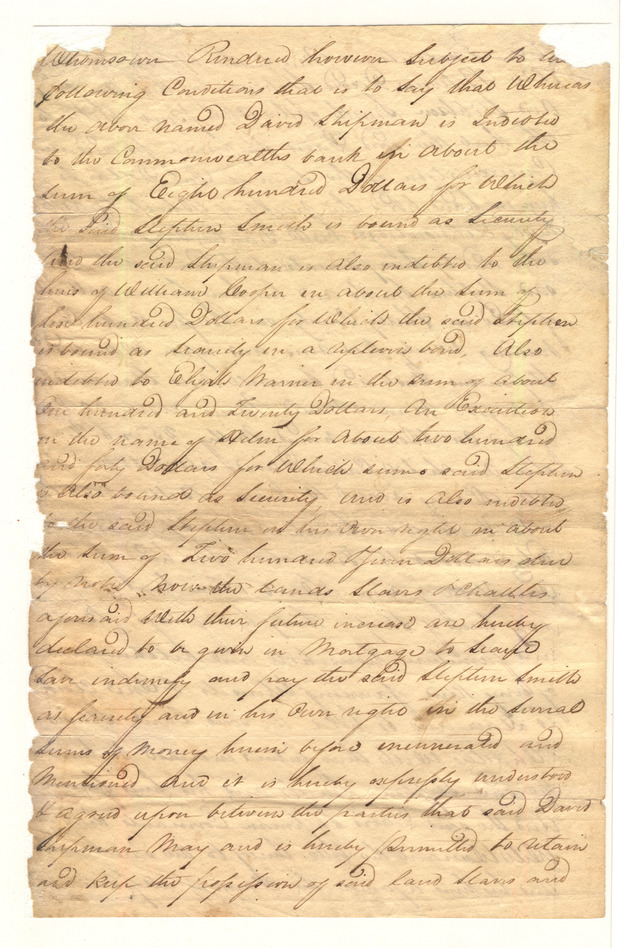 Whomsoever Rendred however Subject to the
following Conditions that is to Say that Whereas
the above named David Shipman is Indebted
to the Commonwealths bank in about the
sum of Eight hundred Dollars for Which
the Said Stephen Smith is bound as Security
And the said Shipman is also indebted to the
heirs of William Cooper in about the Sum of
hundred Dollars for Which the said Stephen
is bound as Security in a replevis bond, Also
indebted to Elijah Warner in the sum of about
One hundred and Twenty Dollars, An Execution
in the name of for about two hundred
and forty Dollars for Which sums said Stephen
is Also bound as Security and is also indebted
to the said Stephen in his own right in about
the Sum of Two hundred Dollars due
by note, now the Lands Slaves & Chattles
aforesaid With their future increase are hereby
declared to be given in Mortgage to Secure
Save indemnify and pay the said Stephen Smith
as Security and in his Own right in the several
sums of Money herein before enumerated and
Mentioned and it is hereby expressly understood
& agreed upon between the parties that said David
Shipman May and is hereby permitted to retain
and keep the possession of said land Slaves and